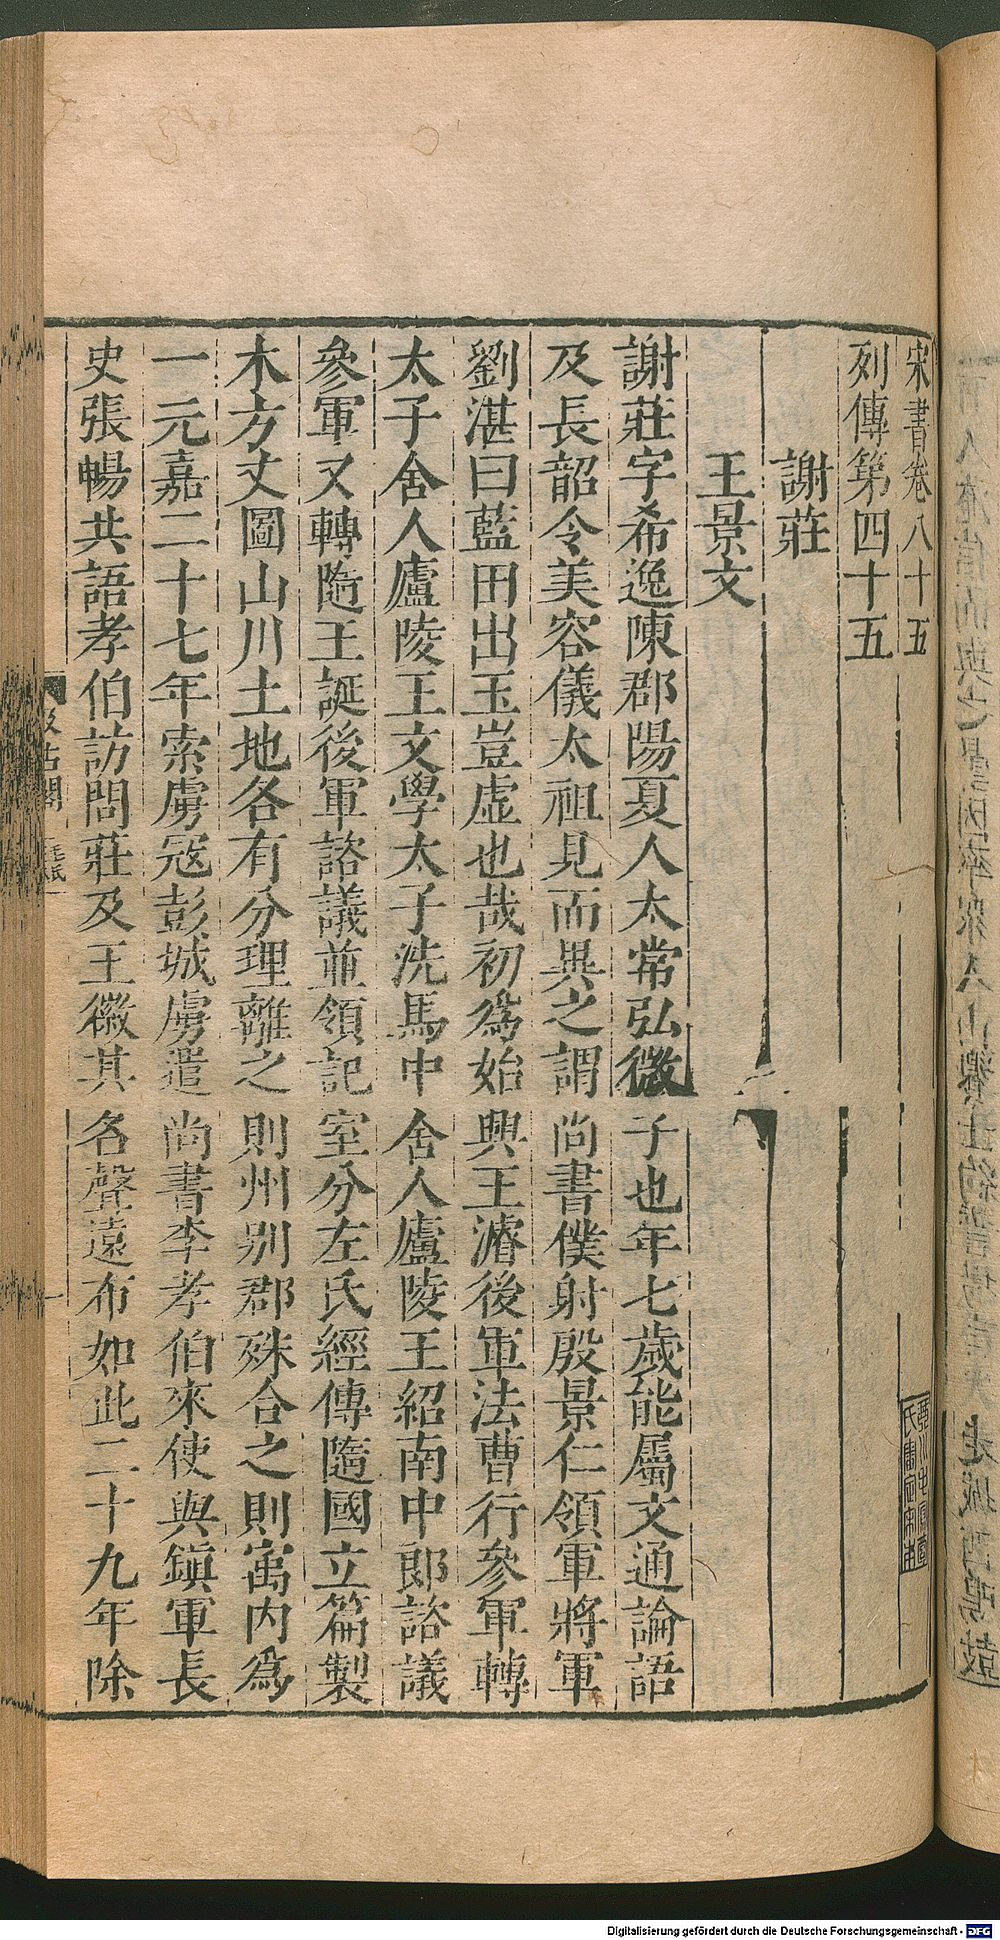 宋書卷八十五
列傳第四十五
謝莊
王景文
謝莊字希逸陳郡陽夏人太常弘微子也年七歲能屬文通論語
及長韶令美容儀太祖見而異之謂尚書僕射殷景仁領軍將軍
劉湛曰藍田出玉豈虛也哉初爲始興王濬後軍法曹行參軍轉
太子舍人廬陵王文學太子洗馬中舍人廬陵王紹南中郎諮議
參軍又轉隨王誕後軍諮議並領記室分左氏經傳隨國立篇製
木方丈圖山川土地各有分理離之則州别郡殊合之則寓内爲
一元嘉二十七年索虜寇彭城虜遣尚書李孝伯來使與鎮軍長
史張暢共語孝伯訪問莊及王徽其名聲遠布如此二十九年除
汲古閣
毛氏
Digitalisierung gefördert durch die Deutsche Forschungsgemeinschaft - DFG